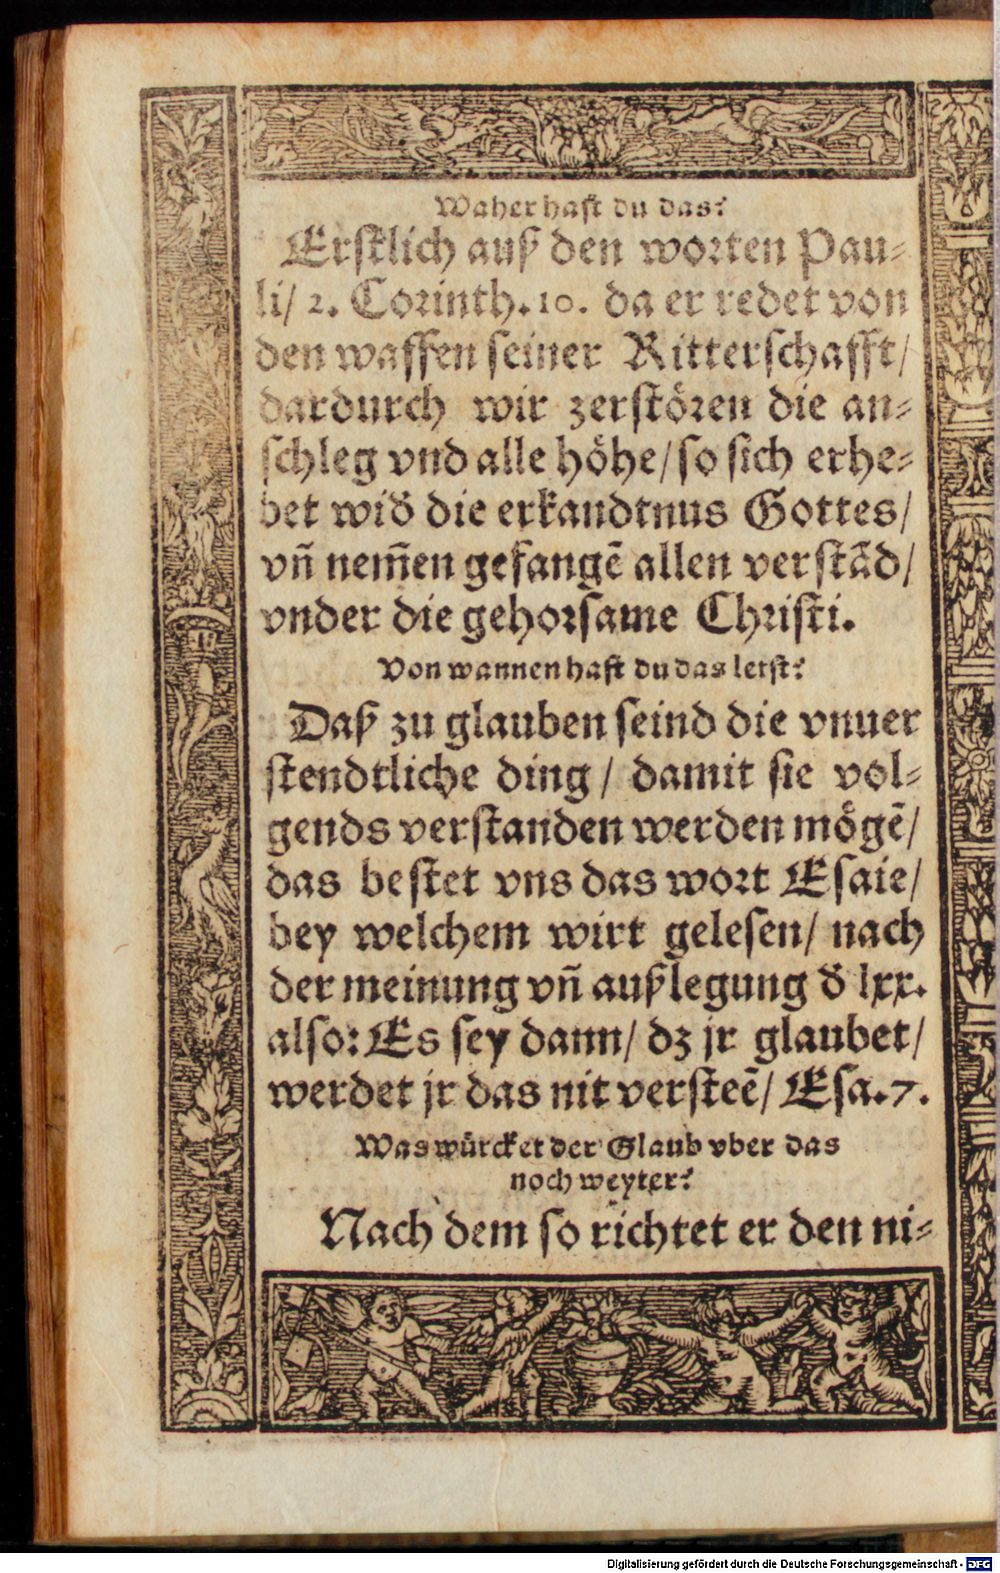 Waher hast du das?
Erstlich auß den worten Pau-
li/ 2. Corinth. 10. da er redet von
den waffen seiner Ritterschafft/
dardurch wir zerstören die an-
schleg vnd alle höhe/ so sich erhe-
bet wid̃ die erkandtnus Gottes/
vñ nem̃en gefangẽ allen verstãd/
vnder die gehorsame Christi.
Von wannen hast du das letst?
Daß zu glauben seind die vnuer
stendtliche ding/ damit sie vol-
gends verstanden werden mögẽ/
das bestet vns das wort Esaie/
bey welchem wirt gelesen/ nach
der meinung vñ außlegung d̃ lxx.
also: Es sey dann/ dz jr glaubet/
werdet jr das nit versteẽ/ Esa. 7.
Was würcket der Glaub vber das
noch weyter?
Nach dem so richtet er den ni-
Digitalisierung gefördert durch die Deutsche Forschungsgemeinschaft - DFG